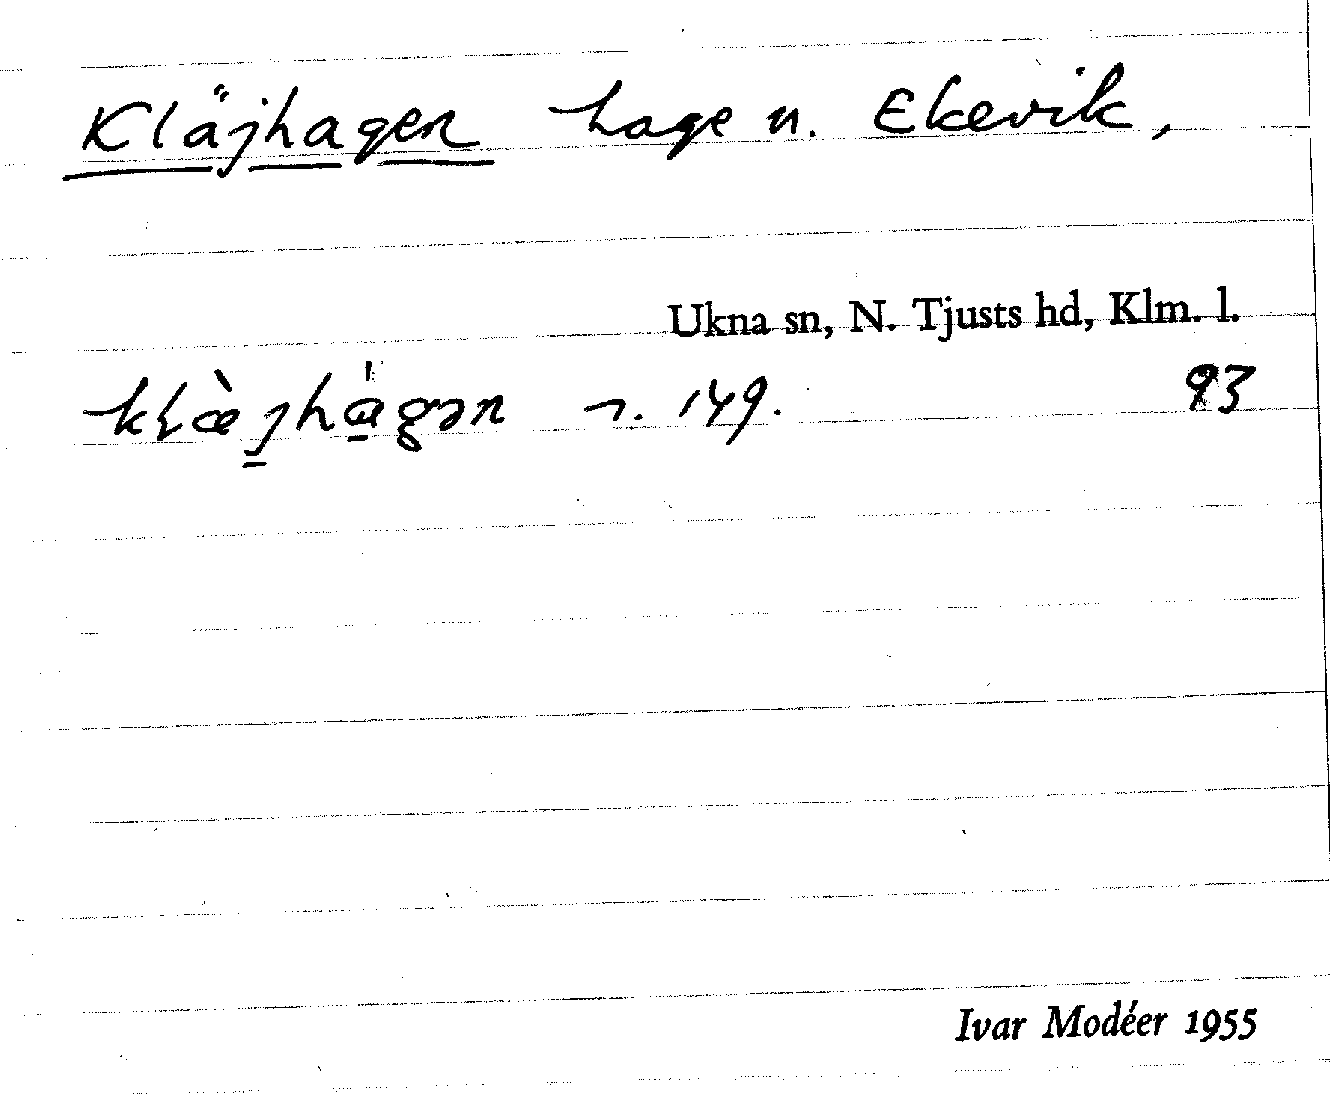 Kläjhagen hage u. Ekevik,
Ukna sn, N. Tjusts hd, Klm. l.
149. 93
Ivar Modéer 1955